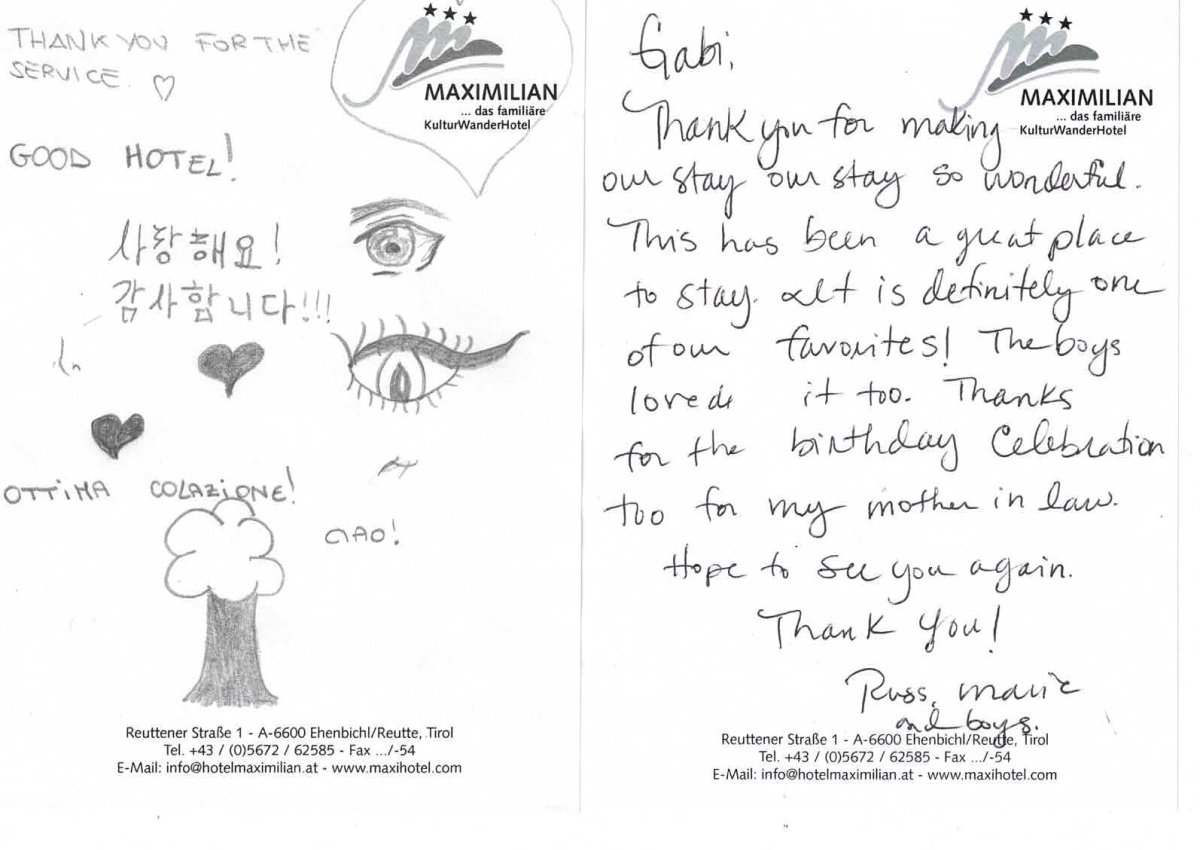 THANK YOU FOR THE
SERVICE.
MAXIMILIAN
... das familiäre
KulturWanderHotel
GOOD HOTEL!
사랑해요!
감사합니다!!!
OTTIMA COLAZIONE!
CIAO!
Reuttener Straße 1 - A-6600 Ehenbichl/Reutte, Tirol
Tel. +43 / (0)5672 / 62585 - Fax .../-54
E-Mail: info@hotelmaximilian.at - www.maxihotel.com
MAXIMILIAN
... das familiäre
KulturWanderHotel
Gabi,
Thank you for making
our stay our stay so wonderful.
This has been a great place
to stay. It is definitely one
of our favorites! The boys
loved it too. Thanks
for the birthday Celebration
too for my mother in law.
Hope to see you again.
Thank You!
Russ, Marie
and boys.
Reuttener Straße 1 - A-6600 Ehenbichl/Reutte, Tirol
Tel. +43 / (0)5672 / 62585 - Fax .../-54
E-Mail: info@hotelmaximilian.at - www.maxihotel.com